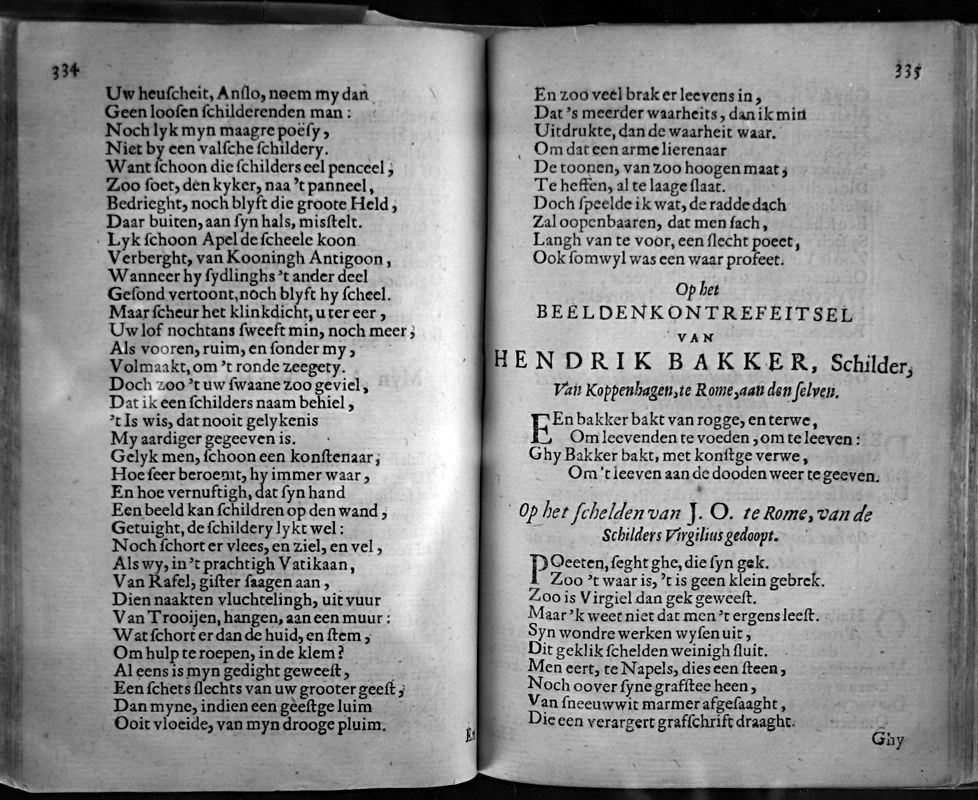 334
Uw heuſcheit, Anſlo, noem my dan
Geen looſen ſchilderenden man :
Noch lyk myn maagre poëſy,
Niet by een valſche ſchildery.
Want ſchoon die ſchilders eel penceel,
Zoo ſoet, den kyker, naa 't panneel,
Bedrieght, noch blyft die groote Held,
Daar buiten, aan ſyn hals, misſtelt.
Lyk ſchoon Apel de ſcheele koon
Verberght, van Kooningh Antigoon,
Wanneer hy ſydlinghs 't ander deel
Geſond vertoont, noch blyft hy ſcheel.
Maar ſcheur het klinkdicht, u ter eer,
Uw lof nochtans ſweeft min, noch meer;
Als vooren, ruim, en ſonder my,
Volmaakt, om 't ronde zeegety.
Doch zoo 't uw ſwaane zoo geviel,
Dat ik een ſchilders naam behiel,
't Is wis, dat nooit gelykenis
My aardiger gegeeven is.
Gelyk men, ſchoon een konſtenaar,
Hoe ſeer beroemt, hy immer waar,
En hoe vernuftigh, dat ſyn hand
Een beeld kan ſchildren op den wand,
Getuight, de ſchildery lykt wel:
Noch ſchort er vlees, en ziel, en vel,
Als wy, in 't prachtigh Vatikaan,
Van Rafel, giſter ſaagen aan,
Dien naakten vluchtelingh, uit vuur
Van Trooijen, hangen, aan een muur :
Wat ſchort er dan de huid, en ſtem,
Om hulp te roepen, in de klem?
Al eens is myn gedight geweeſt,
Een ſchets ſlechts van uw grooter geeſt;
Dan myne, indien een geeſtge luim
Ooit vloeide, van myn drooge pluim.
En
335
En zoo veel brak er leevens in,
Dat 's meerder waarheits, dan ik min
Uitdrukte, dan de waarheit waar.
Om dat een arme lierenaar
De toonen, van zoo hoogen maat,
Te heffen, al te laage ſlaat.
Doch ſpeelde ik wat, de radde dach
Zal oopenbaaren, dat men ſach,
Langh van te voor, een ſlecht poeet,
Ook ſomwyl was een waar profeet.
Op het
BEELDENKONTREFEITSEL
VAN
HENDRIK BAKKER, Schilder,
Van Koppenhagen, te Rome, aan den ſelven.
EEn bakker bakt van rogge, en terwe,
Om leevenden te voeden, om te leeven :
Ghy Bakker bakt, met konſtge verwe,
Om 't leeven aan de dooden weer te geeven.
Op het ſchelden van J. O. te Rome, van de
Schilders Virgilius gedoopt.
POeeten, ſeght ghe, die ſyn gek.
Zoo 't waar is, 't is geen klein gebrek.
Zoo is Virgiel dan gek geweeſt.
Maar 'k weet niet dat men 't ergens leeſt.
Syn wondre werken wyſen uit,
Dit geklik ſchelden weinigh ſluit.
Men eert, te Napels, dies een ſteen,
Noch oover ſyne grafſtee heen,
Van ſneeuwwit marmer afgeſaaght,
Die een verargert grafſchrift draaght.
Ghy